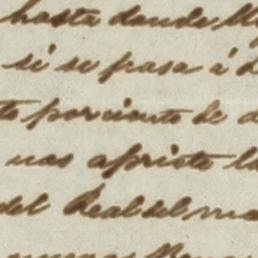 hasta donde
si se pasa á
por ciento de
nas apriete la
del Real del